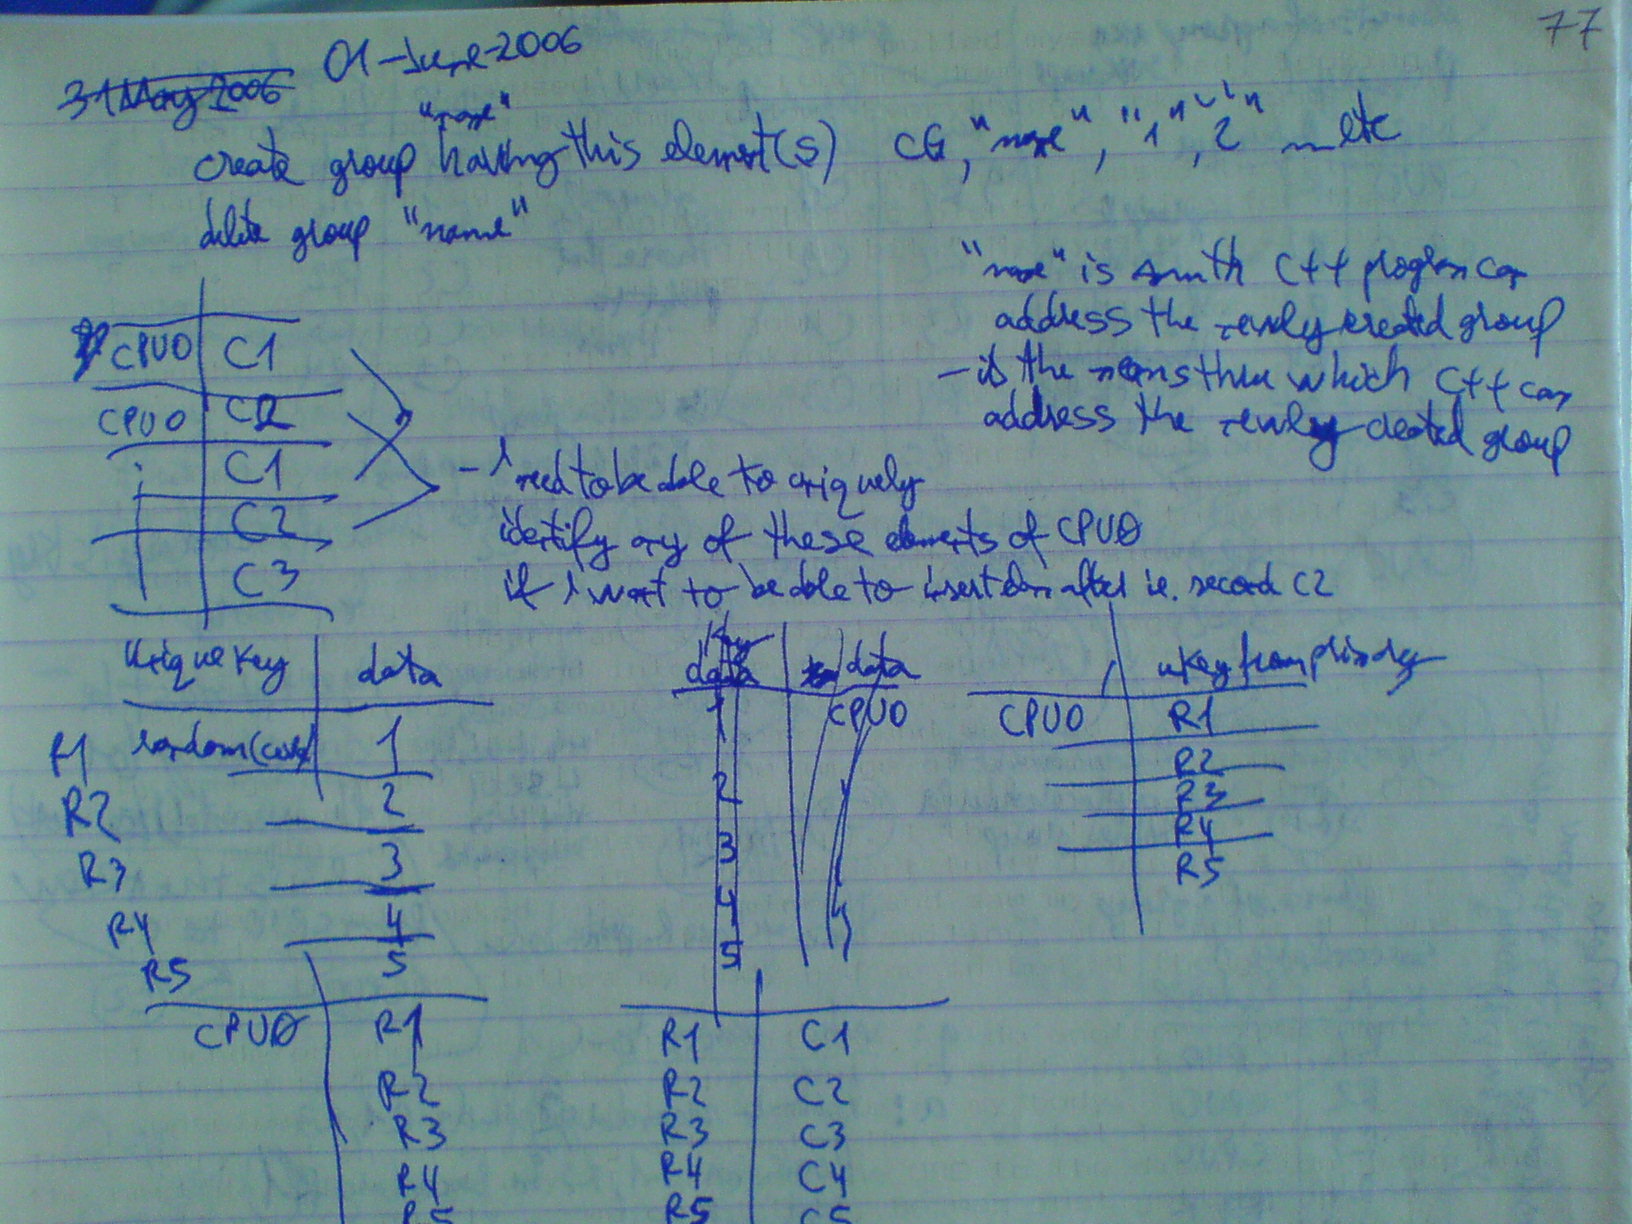 77
31 May 2006 01-June-2006
"name"
create group having this element(s) CG, "name", "1", "2" ... etc
delete group "name"
"name" is smth C++ program can
address the newly created group
- is the means thru which C++ can
address the newly created group
CPU0 C1
CPU0 C2
C1
C2
C3
- I need to be able to uniquely
identify any of these elements of CPUØ
if I want to be able to insert elem after ie. second C2
unique key data
R1 random(cus) 1
R2 2
R3 3
R4 4
R5 5
key
data data
1 CPU0
2
3
4
5
ukey from prim
CPU0 R1
R2
R3
R4
R5
CPUØ R1
R2
R3
R4
R5
R1 C1
R2 C2
R3 C3
R4 C4
R5 C5